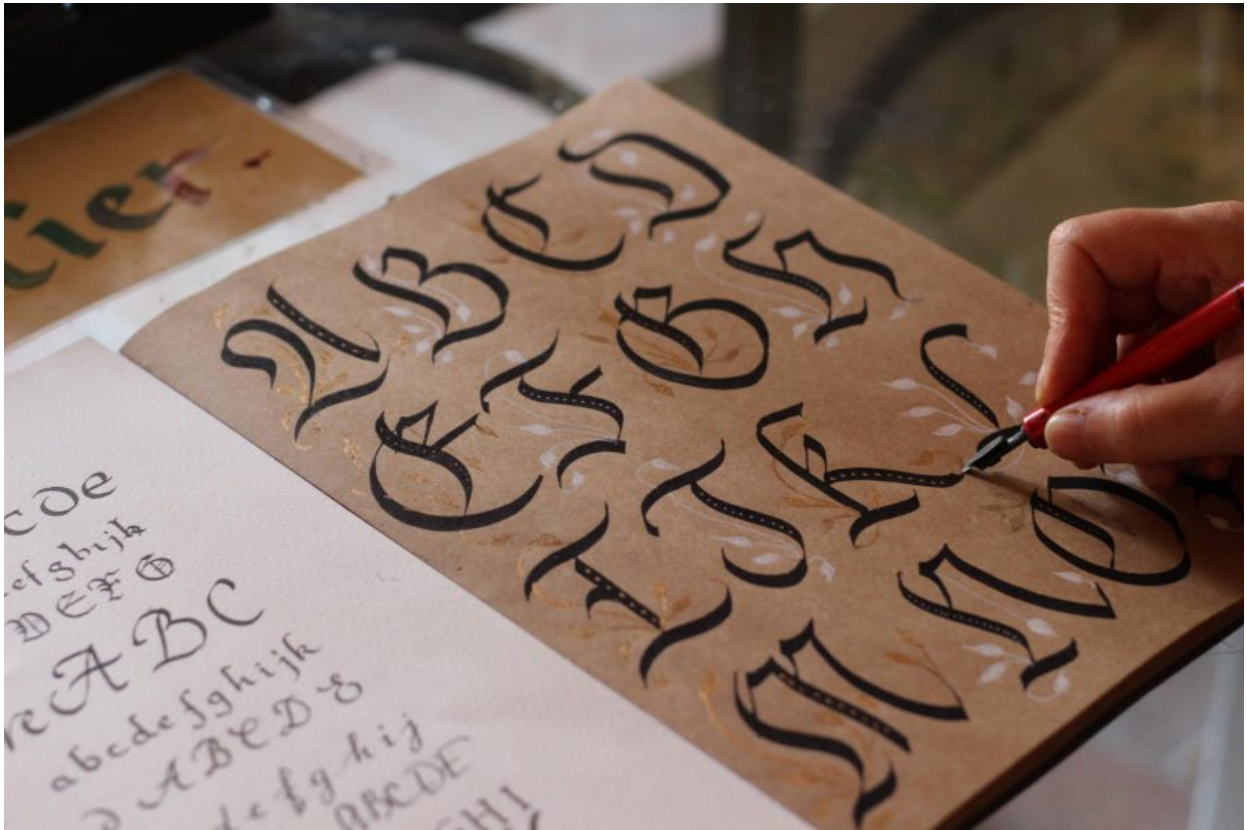 ier
A B C D
E F G H
I J K L
M N O
CDe
efghijk
DEFG
re ABC
abcdefghijk
d ABCDE
defghij
ABCDE
GHI